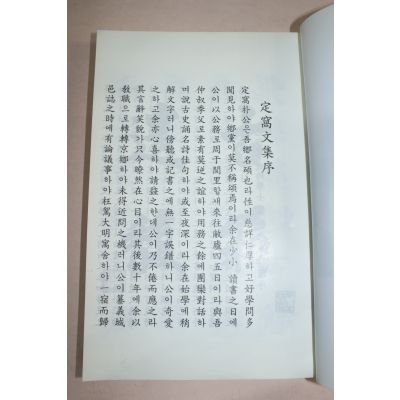 定窩文集序
定窩朴公은吾鄕名碩也라性이慈詳仁厚하고好學問多
聞見하야鄕黨이莫不稱焉이라余在少小讀書之日에
公이以公務로周于閭里할새來往敝廬四五日이라與吾
仲叔季父로素有莫逆之誼하야用務之餘에團欒對話하
며說古史誦名詩佳句하야或至夜深이라余在始學에稍
解文字러니傍聽或記書之에無一字誤錯하니公이奇愛
之하고余亦心喜하야請益之한대公이乃不倦而應之라
其言辭笑貌가只今瞭然在心目이라其後數十年에余以
敎職으로轉轉京鄕하야未得近問之機러니公이纂義城
邑誌之時에有論議事하야枉駕大明寓舍하야一宿而歸